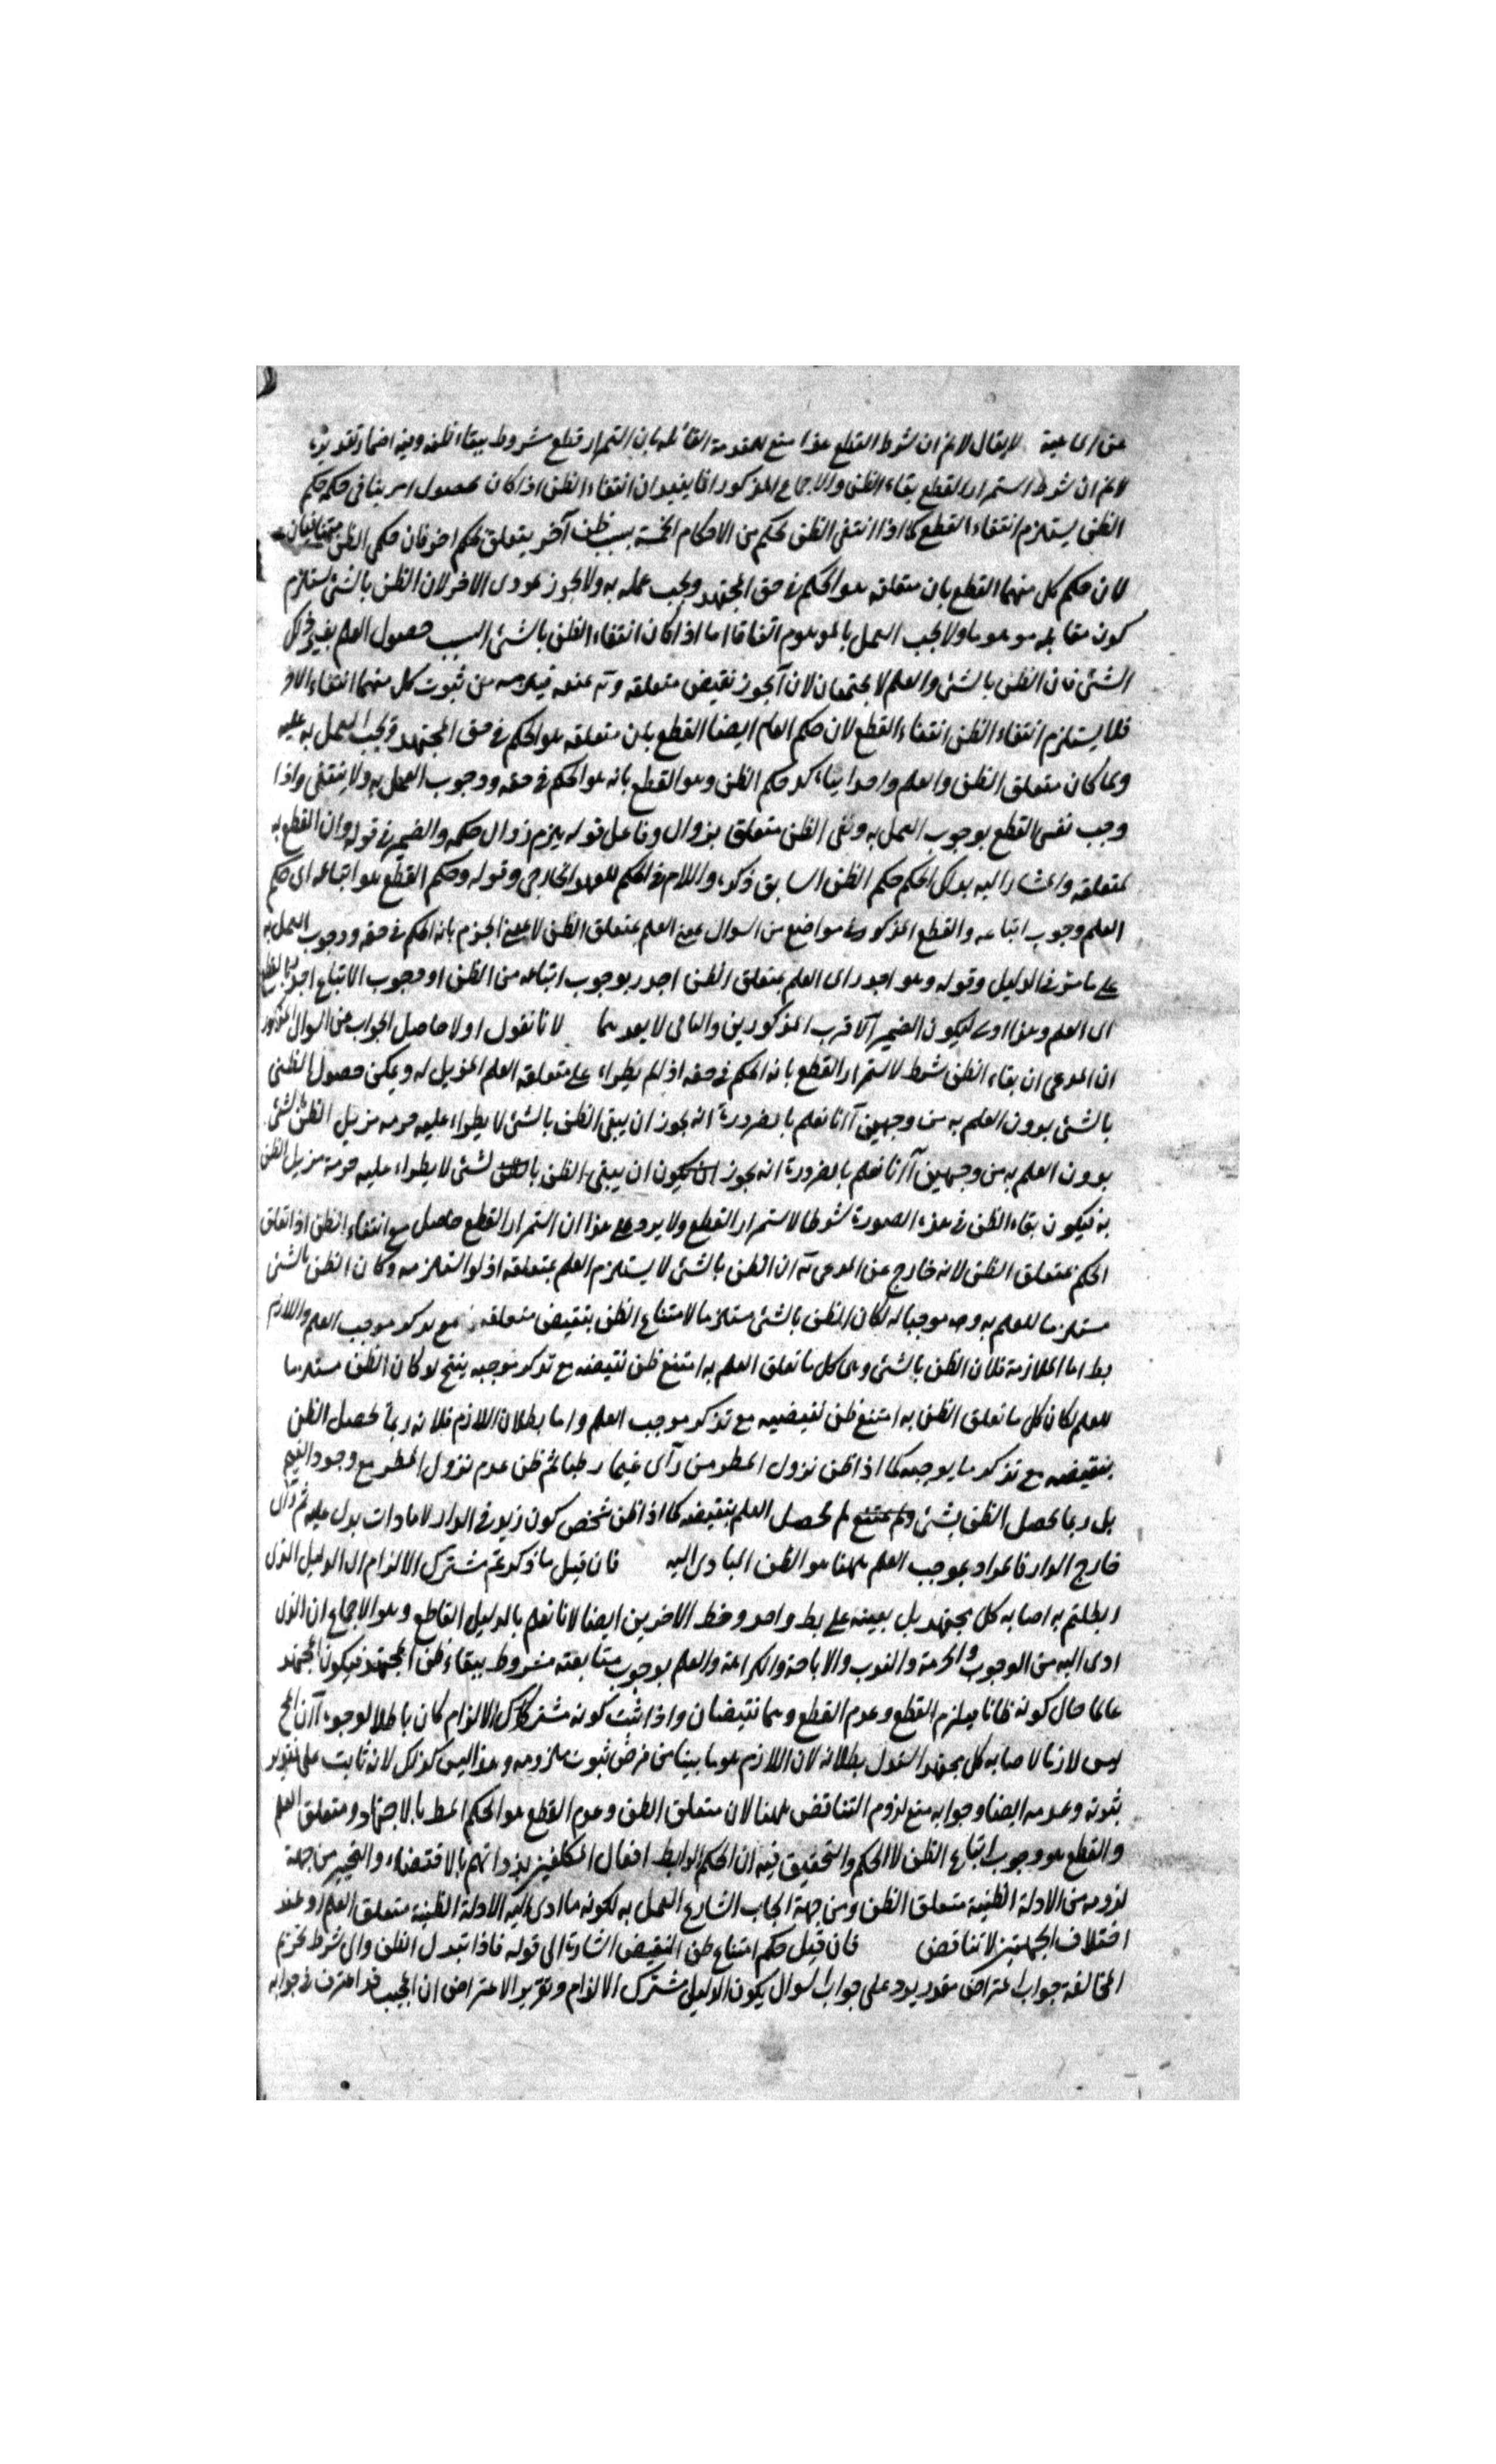 لا يقال لا نم ان شرط القطع هذا منع للمقدمة القائله بان استمرار قطع مشروط ببقاء ظنه وفيه اضمار تقديره
لا نم ان شرط استمرار القطع بقاء الظن والاجماع المذكور انما يفيد ان انتفاء الظن اذا كان بحصول امر ينافى حكمه حكم
الظن يستلزم انتفاء القطع كما اذا انتفى الظن بحكم من الاحكام الخمسة بسبب ظن آخر يتعلق بحكم اخر فان حكمى الظن متنافيان
لان حكم كل منهما القطع بان متعلقه هو الحكم فى حق المجتهد ويجب عمله به ولا يجوز بمودى الاخر لان الظن بالشئ يستلزم
كون مقابله موهوما ولا يجب العمل بالموهوم اتفاقا اما اذا كان انتفاء الظن بالشئ لسبب حصول العلم بغير ذلك
الشئ فان الظن بالشئ والعلم لا يجتمعان لان آ يجوز نقيض متعلقه و يمنعه فيلزمه من ثبوت كل منهما انتفاء الاخر
فلا يستلزم انتفاء الظن انتفاء القطع لان حكم العلم ايضا القطع بان متعلقه هو الحكم فى حق المجتهد ويجب العمل به عليه
وما كان متعلق الظن والعلم واحدا يتاكد حكم الظن وهو القطع بانه هو الحكم فى حقه ووجوب العمل به ولا ينتفى واذا
وجب نفس القطع بوجوب العمل به ونفى الظن متعلق بزوال وفاعل قوله يلزم زوال حكمه والضمير فى قوله وان القطع به
لمتعلقه والمشار اليه بذلك الحكم حكم الظن السابق ذكره واللام فى الحكم للعهد الخارجى وقوله وحكم القطع هو اتباعه اى حكم
العلم وجوب اتباعه والقطع المذكور فى مواضع من السوال بمعنى العلم بمتعلق الظن لا بمعنى الجزم بانه الحكم فى حقه ووجوب العمل به
على ما مر فى الدليل وقوله وهو اجدر اى العلم بمتعلق الظن اجدر بوجوب اتباعه من الظن او وجوب الاتباع اجدر بالقطع
اى العلم وهذا اولى ليكون الضمير لاقرب المذكورين والنافى لابعدهما لانا نقول اولا حاصل الجواب عن السوال المذكور
ان المدعى ان بقاء الظن شرط لاستمرار القطع بانه الحكم فى حقه اذ لم يطراء على متعلقه العلم المزيل له ويمكن حصول الظن
بالشئ بدون العلم به من وجهين آ انا نعلم بالضرورة انه يجوز ان يبقى الظن بالشئ لا يطراء عليه حرمه مزيل الظن بالشئ
بدون العلم به من وجهين آ انا نعلم بالضرورة انه يجوز ان يكون ان يبقى الظن بالشئ لا يطراء عليه حرمة مزيل الظن
به فيكون بقاء الظن فى هذه الصورة شرطا لاستمرار القطع ولا يرد على هذا ان استمرار القطع حاصل مع انتفاء الظن اذا تعلق
الحكم بمتعلق الظن لانه خارج عن المدعى ان الظن بالشئ لا يستلزم العلم بمتعلقه اذ لو استلزمه وكان الظن بالشئ
مستلزما للعلم به وصه موجبا له لكان الظن بالشئ مستلزما لامتناع الظن بنقيض متعلقه مع تذكر موجب العلم واللازم
بط اما الملازمة فلان الظن بالشئ وهى كل ما تعلق العلم به امتنع ظن نقيضه مع تذكر موجبه ينتج لو كان الظن مستلزما
للعلم لكان كل ما تعلق الظن به امتنع ظن نقيضه مع تذكر موجب العلم واما بطلان اللازم فلانه ربما يحصل الظن
بنقيضه مع تذكر ما يوجبه كما اذا ظن نزول المطر من رآى غيما رطبا ثم ظن عدم نزول المطر مع وجود الغيم
بل ربما يحصل الظن بشئ ولم يمتنع لم يحصل العلم بنقيضه كما اذا ظن شخص كون زيد فى الدار لامارات يدل عليه ثم رآى
خارج الدار فالمراد بموجب العلم ههنا هو الظن المبادى اليه فان قيل ما ذكرتم مشترك الالزام اى الدليل الذى
ابطلتم به اصابه كل مجتهد يل بعينه على بط واحد وخط الاخرين ايضا لانا نعلم بالدليل القاطع وهو الاجماع ان الذى
ادى اليه من الوجوب والحرمة والندب والاباحة والكراهة والعلم بوجوب متابعته مشروط ببقاء ظن المجتهد فيكون المجتهد
عالما حال كونه ظانا فيلزم القطع وعدم القطع وهما نقيضان واذا ثبت كونه مشترك الالزام كان باطلا لوجوه آ ان المج
ليس لازما لاصابه كل مجتهد بطلانه لان اللازم هو ما بينا من فرض ثبوت ملزومه وهذا ليس كذلك لانه ثابت على تقدير
ثبوته وعدمه ايضا وجوابه منع لزوم التناقض ههنا لان متعلق الظن وعدم القطع هو الحكم المط بالاجتهاد ومتعلق العلم
والقطع هو وجوب اتباع الظن لا الحكم والتحقيق فيه ان الحكم الرابط افعال المكلفين بذواتهم بالاقتضاء والتخيير من جهة
لزومه من الادلة الظنية متعلق الظن ومن جهة ايجاب الشارع العمل به لكونه ما ادى اليه الادلة الظنية متعلق العلم وعند
اختلاف الجهتين لا تناقض فان قيل حكم امتناع ظن النقيض اشارة الى قوله فاذا تبدل الظن والى شرط تحريم
المخالفة جواب اعتراض مقدر يرد على جواب السوال بكون الدليل مشترك الالزام وتقرير الاعتراض ان المجيب قد اعترف فى جوابه